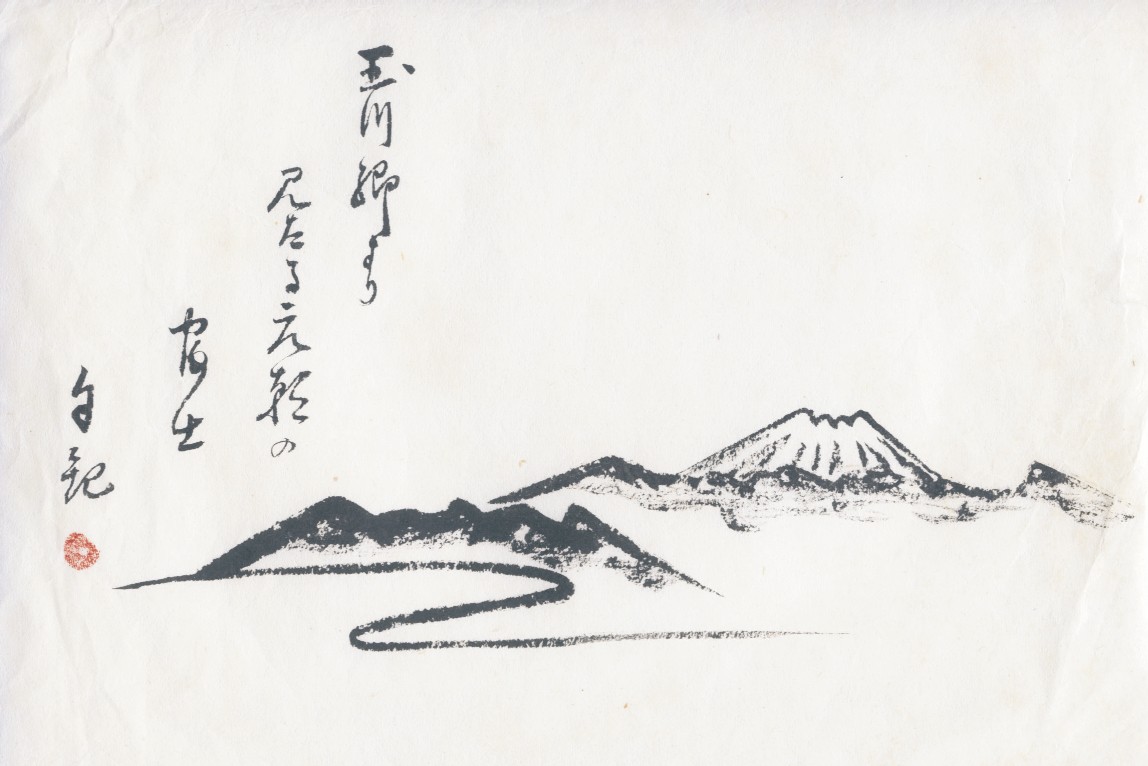 玉川郷より
見たる元朝の
富士
午観